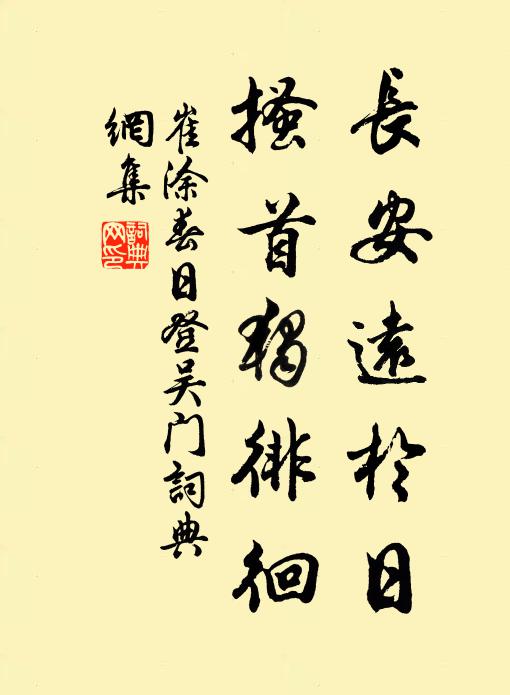 長安遠於日
搔首獨徘徊
崔涂春日登吴门詞典
網集
詞典
网印